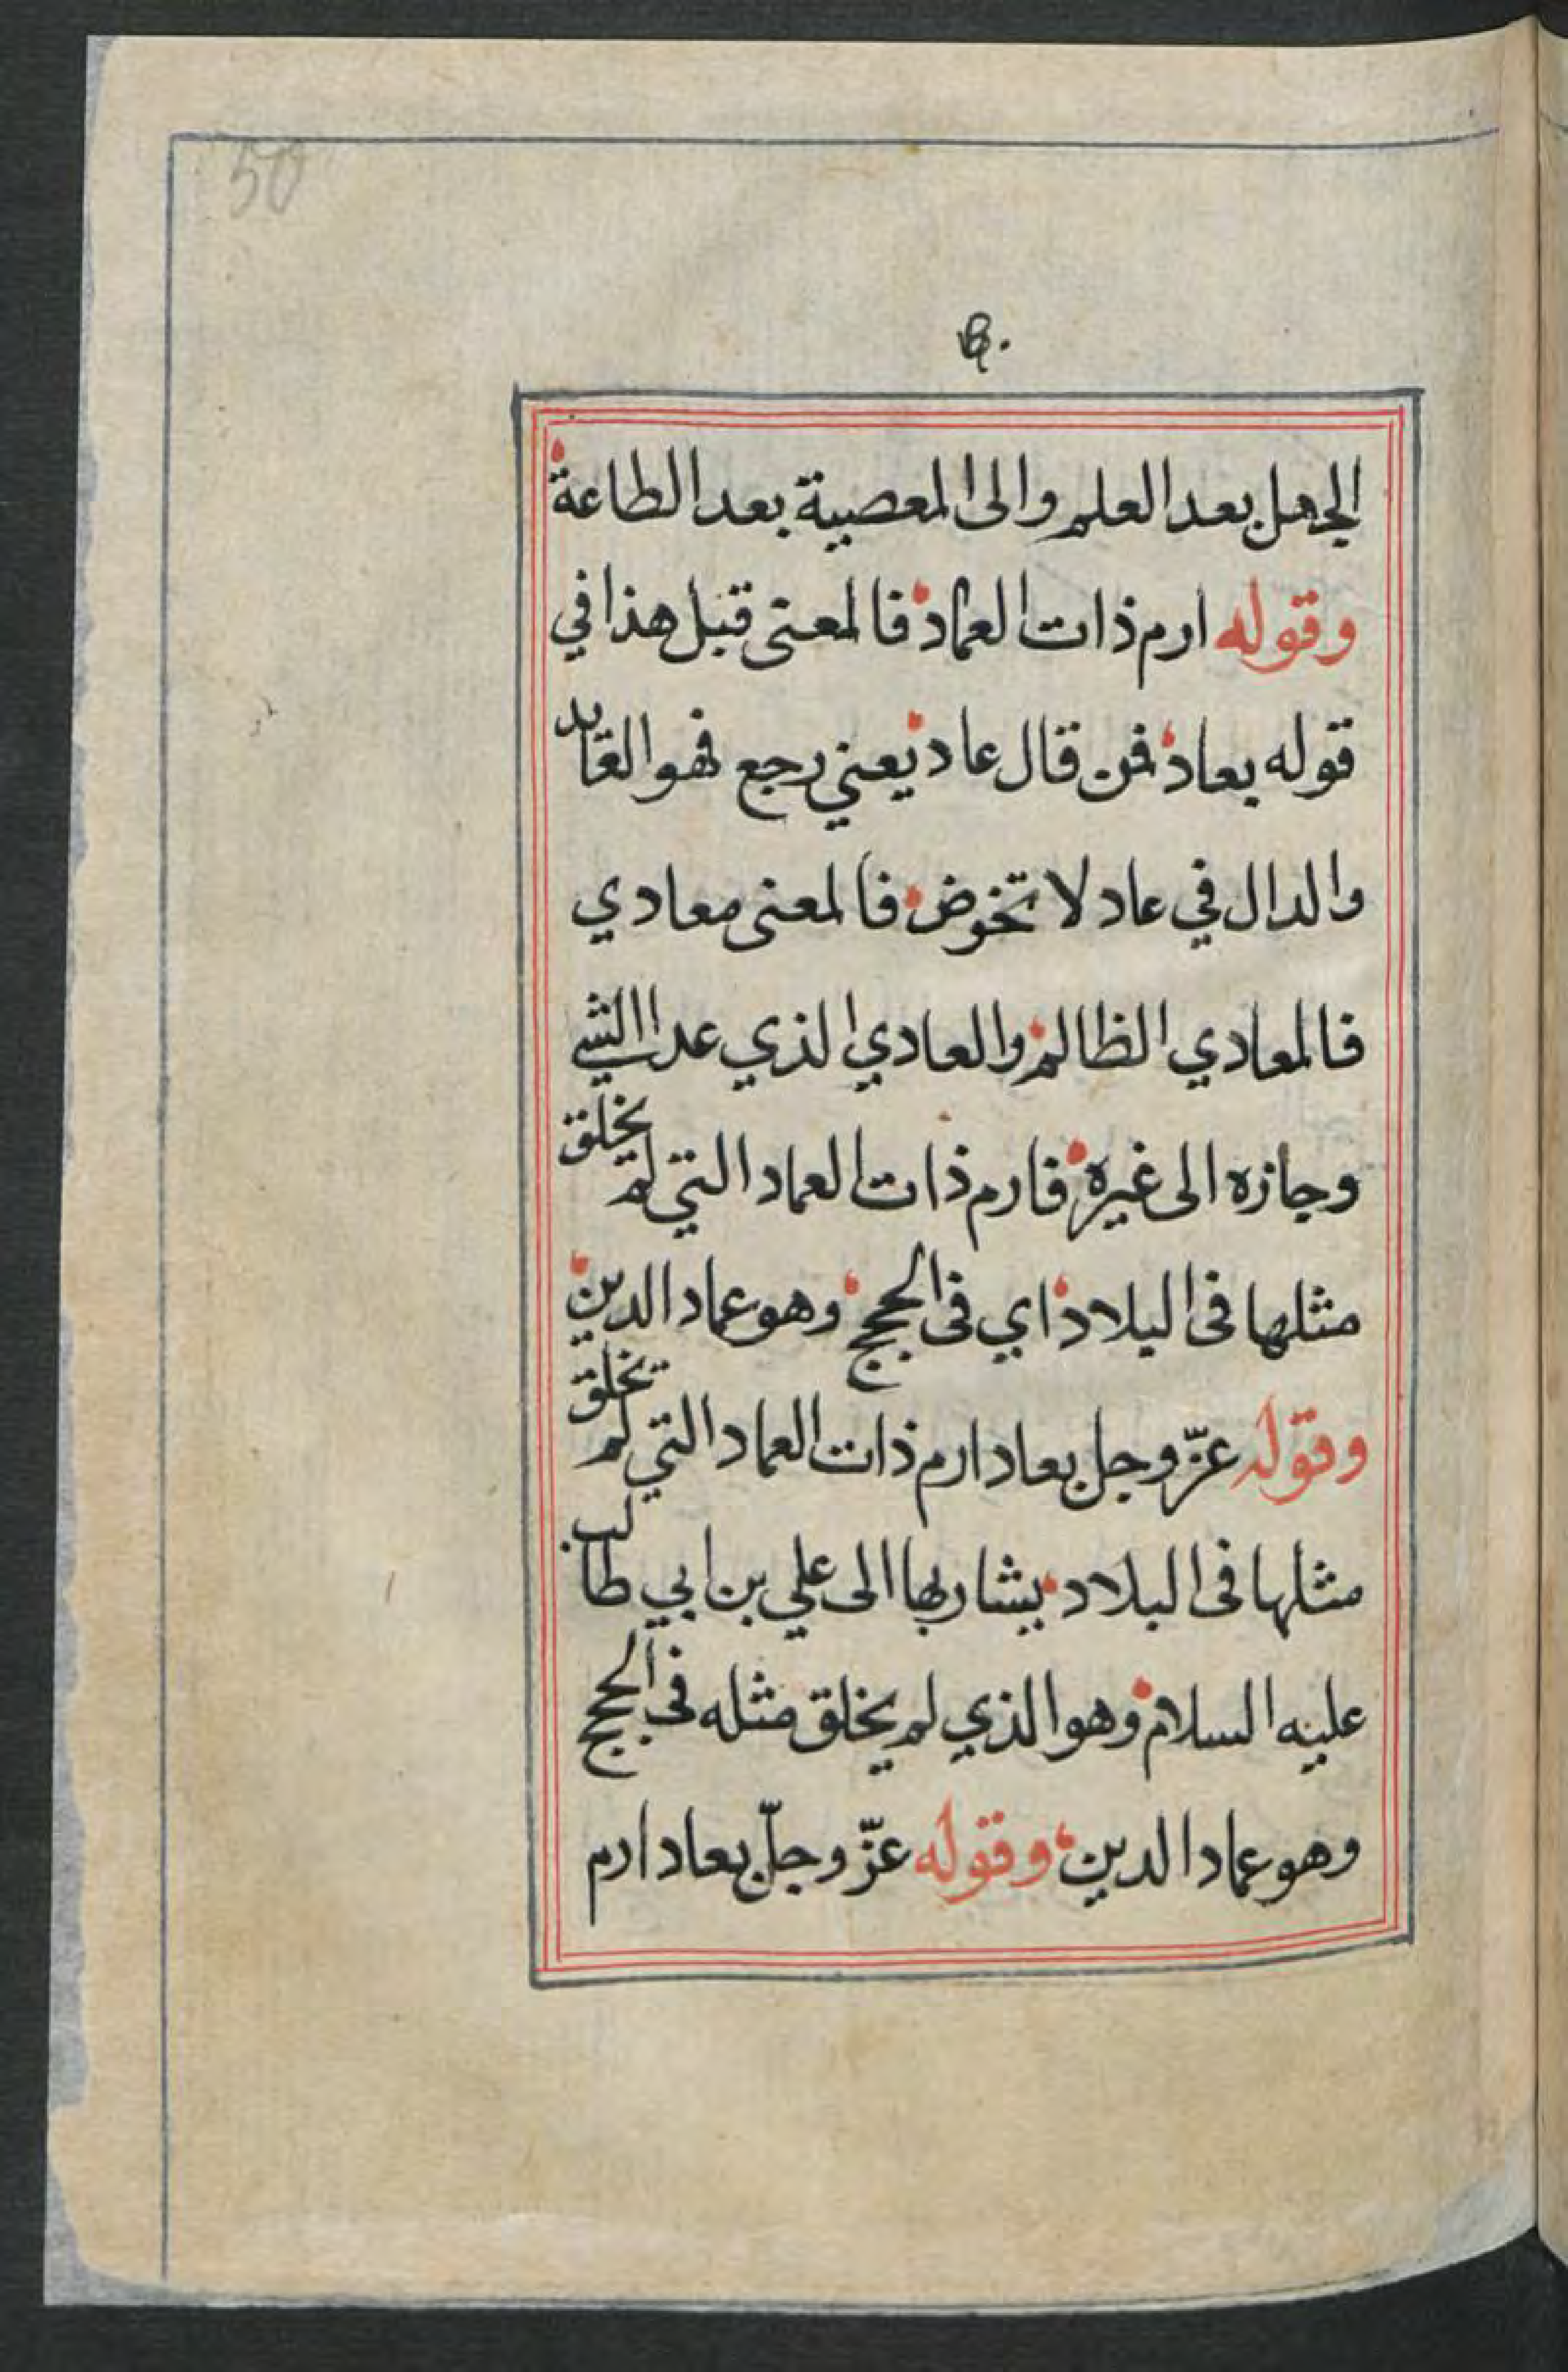 50
٥٠
الجهل بعد العلم والى المعصية بعد الطاعة
وقوله ارم ذات العماد فالمعنى قبل هذا في
قوله بعاد فمن قال عاد يعني رجع فهو العايد
والدال في عاد لا تخوض فالمعنى معادي
فالمعادي الظالم والعادي الذي عدا الشي
وجازه الى غيره فارم ذات العماد التي لم يخلق
مثلها في البلاد اي في الحجج وهو عماد الدين
وقوله عزّ وجل بعاد ارم ذات العماد التي لم يخلق
مثلها في البلاد يشار بها الى علي بن ابي طالب
عليه السلام وهو الذي لم يخلق مثله في الحجج
وهو عماد الدين وقوله عزّ وجلّ بعاد ارم